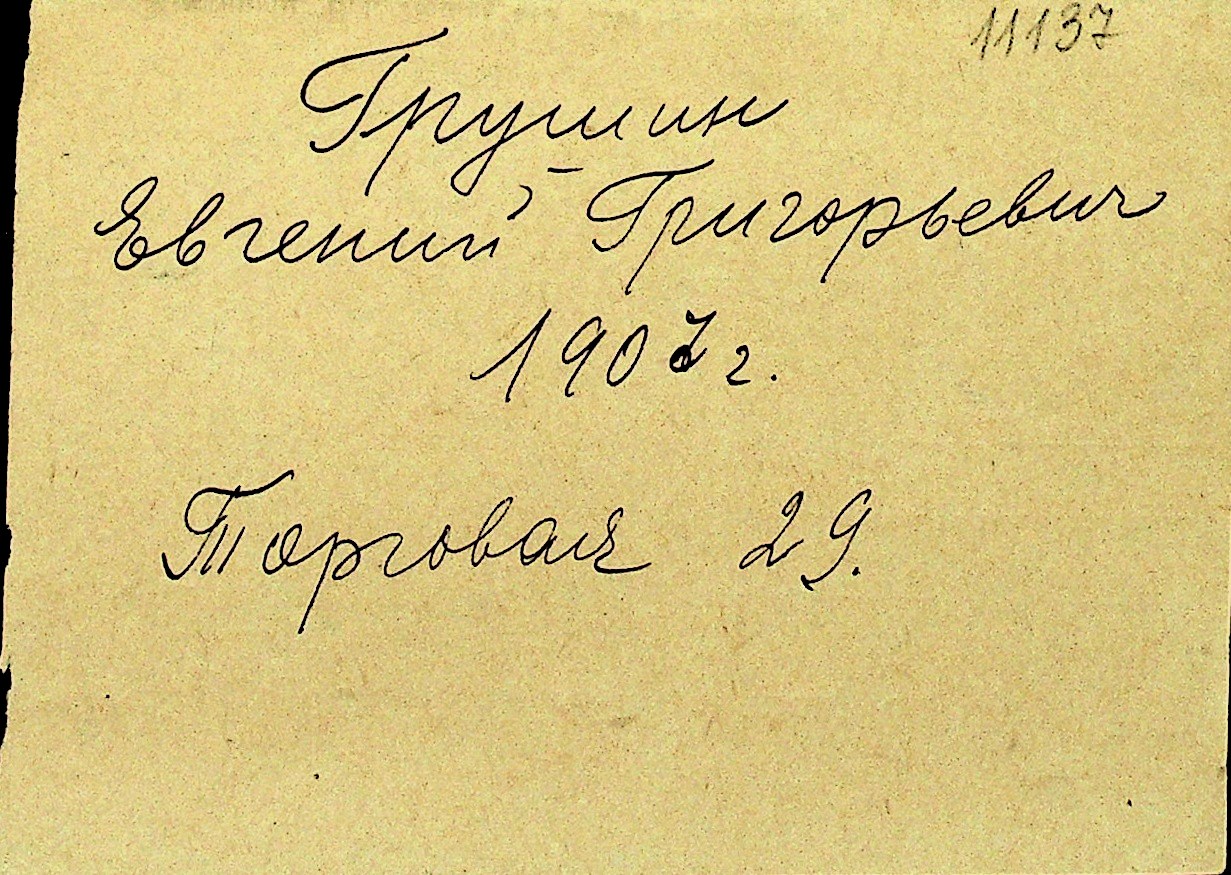 11137
Грушин
Евгений Григорьевич
1907 г.
Торговая 29.